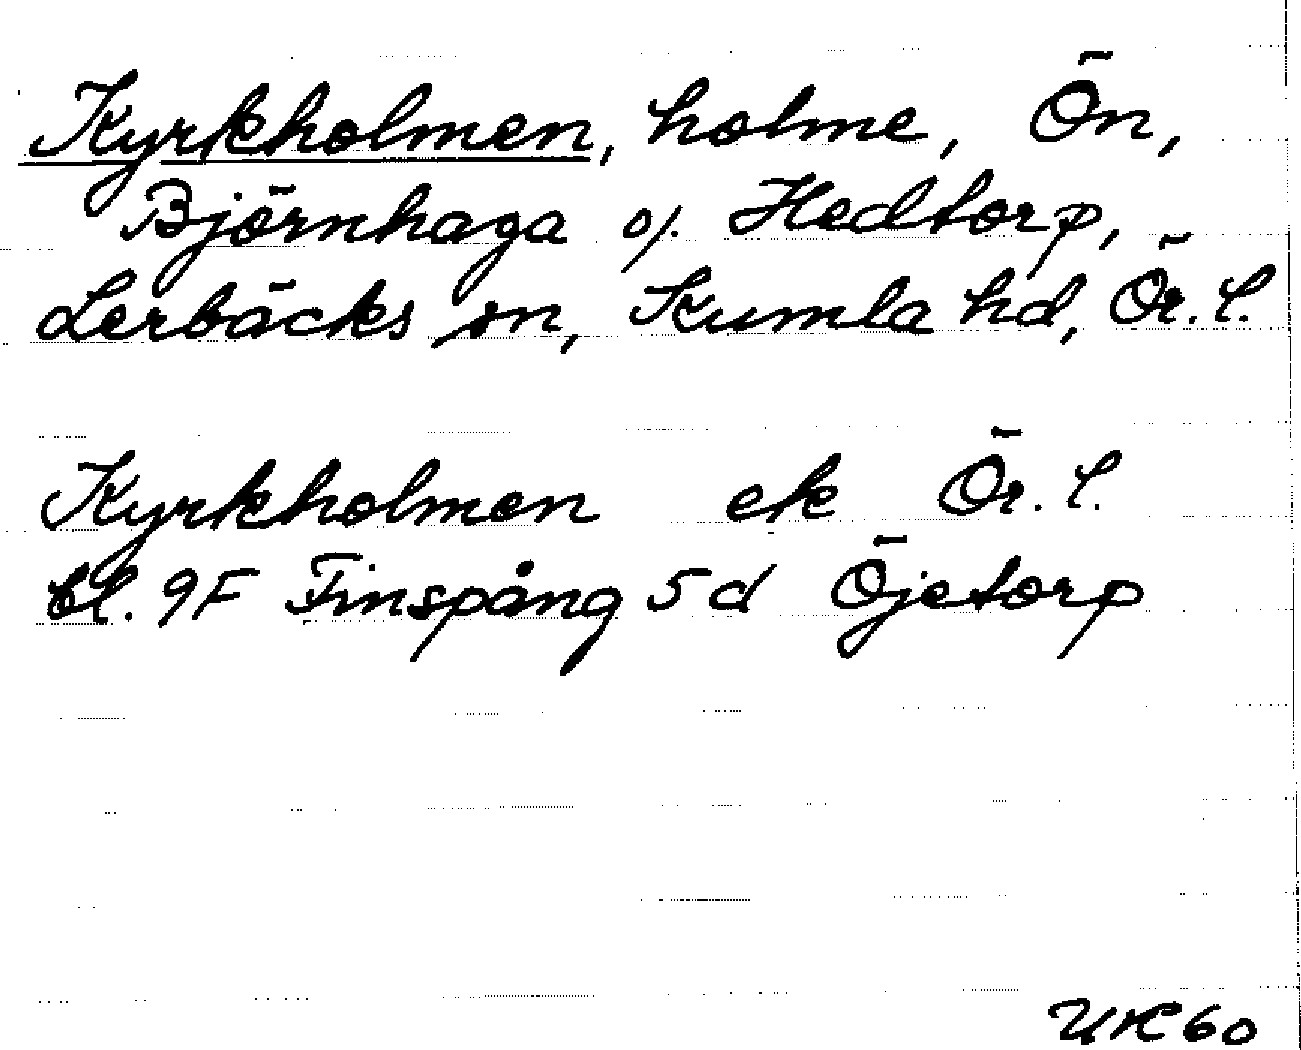 Kyrkholmen, holme, Ön,
Björnhaga o. Hedtorp,
Lerbäcks sn, Kumla hd, Ör. l.
Kyrkholmen ek Ör. l.
bl. 9F Finspång 5d Öjetorp
UK60